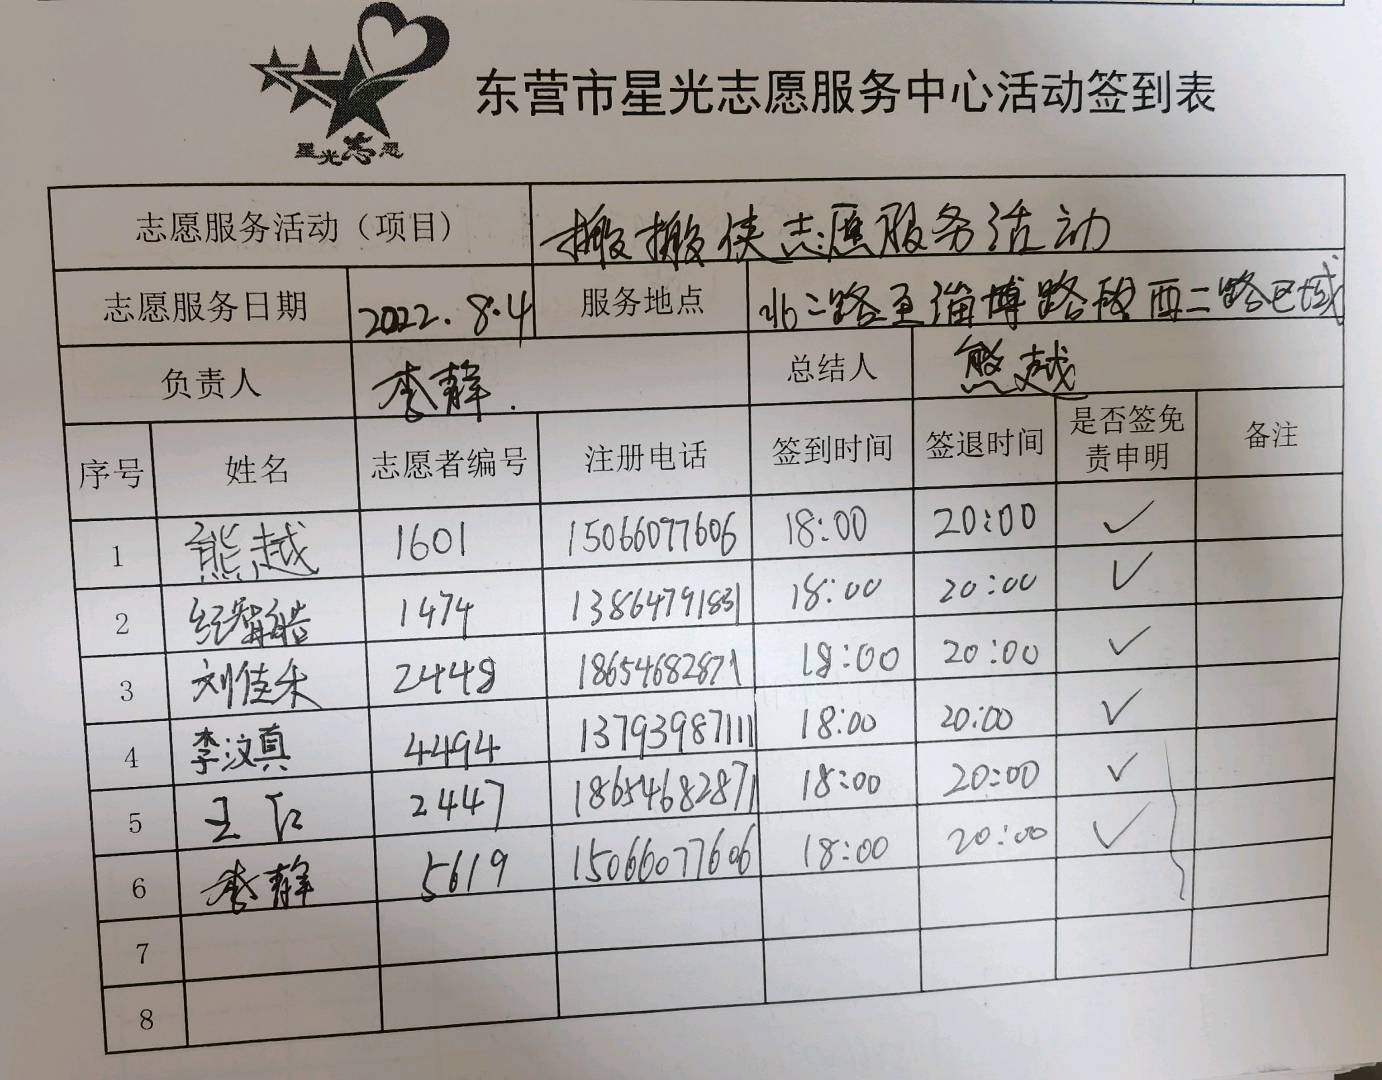 星光志愿
东营市星光志愿服务中心活动签到表
志愿服务活动（项目） 搬搬侠志愿服务活动
志愿服务日期 2022.8.4 服务地点 北二路至淄博路段西二路区域
负责人 李静. 总结人 熊越
序号 姓名 志愿者编号 注册电话 签到时间 签退时间 是否签免责申明 备注
1 熊越 1601 15066077606 18:00 20:00 ✓
2 1474 13864791831 18:00 20:00 ✓
3 刘佳禾 2448 18654682871 18:00 20:00 ✓
4 李汶真 4494 13793987111 18:00 20:00 ✓
5 王 2447 18654682871 18:00 20:00 ✓
6 李静 5619 15066077606 18:00 20:00 ✓
7
8